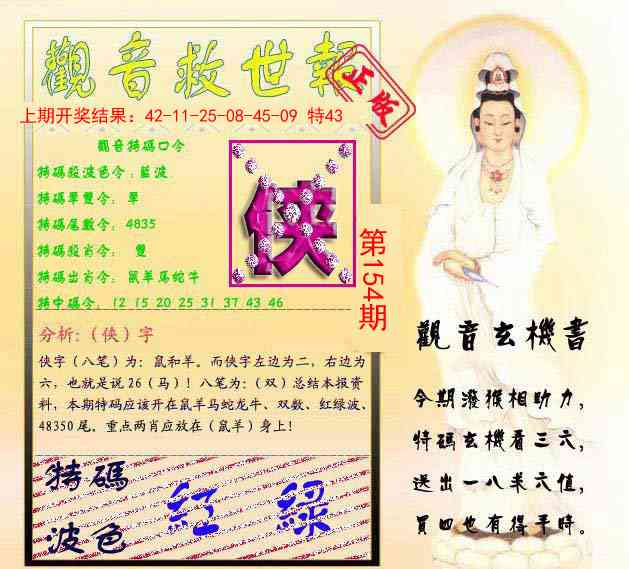 觀音救世報
正版
上期开奖结果：42-11-25-08-45-09 特43
觀音特碼口令
特碼段波色令:藍波
特碼單雙令： 單
特碼尾數令： 4835
特碼段肖令： 雙
特碼出肖令： 鼠羊马蛇牛
特中碼令： 12 15 20 25 31 37 43 46
俠
第154期
分析:（俠）字
俠字（八笔）为：鼠和羊。而俠字左边为二，右边为
六，也就是说 26（马）！八笔为:（双）总结本报资
料，本期特码应该开在鼠羊马蛇龙牛、双数、红绿波、
48350 尾。重点两肖应放在（鼠羊）身上！
特碼
波色
紅 綠
觀音玄機書
今期潑猴相助力，
特碼玄機看三六，
送出一八來六值，
買四也有得手時。